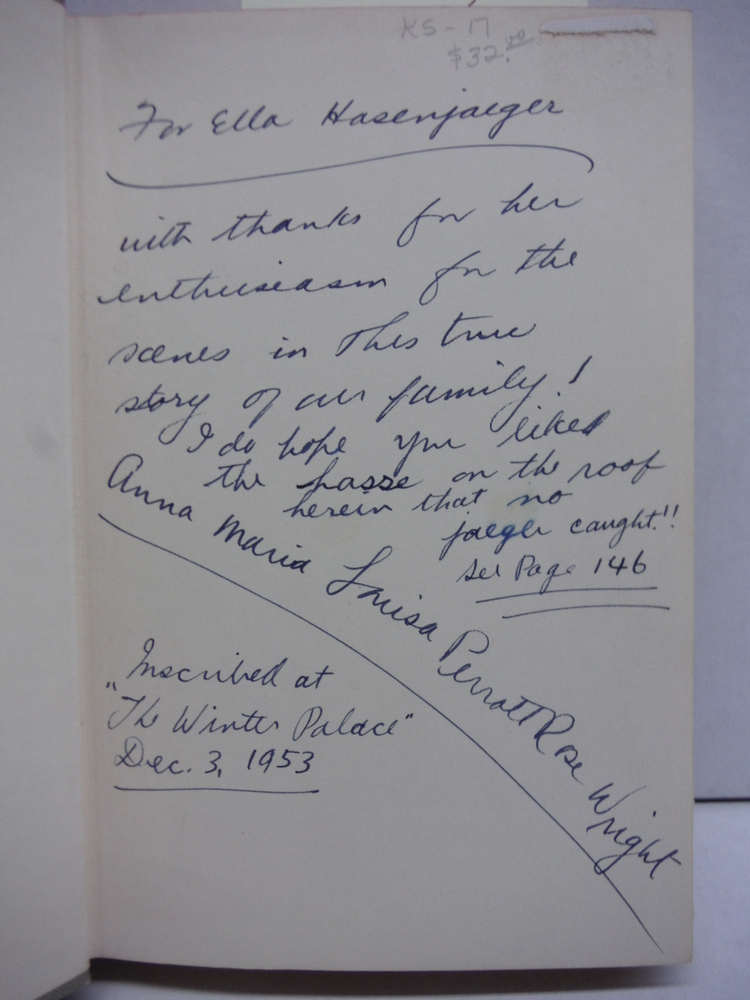 KS-17
$32.00
For Ella Hasenjaeger
with thanks for her
enthusiasm for the
scenes in this true
story of our family!
I do hope you liked
the hasse on the roof
herein that no
jaeger caught!!
see Page 146
Anna Maria Louisa Perrott Rose Wright
"Inscribed at
The Winter Palace"
Dec. 3, 1953